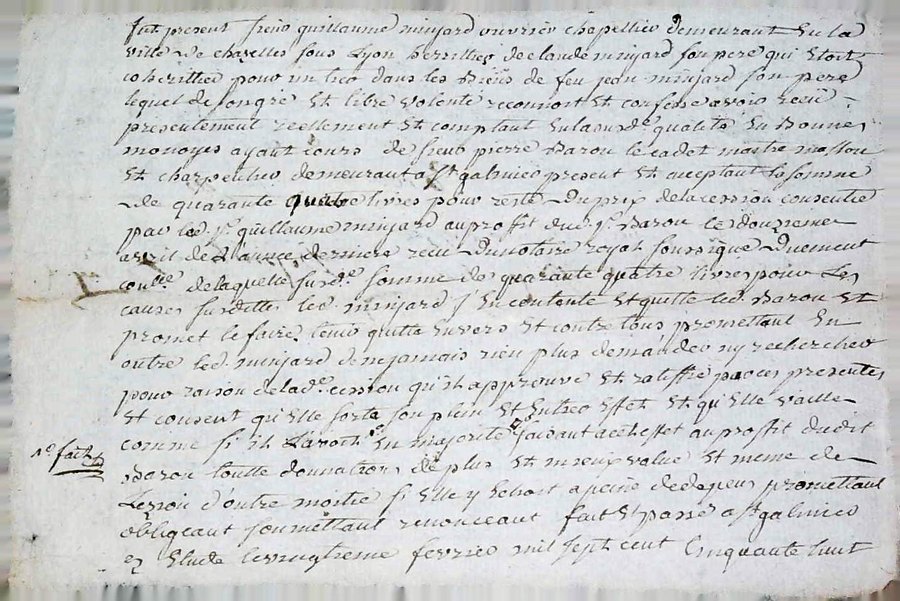 fut present sieur guillaume minjard ouvrier chapellier demeurant En la
ville de chazelles sous Lyon herritier de claude minjard son pere qui Etoit
coherittier pour un tier dans les Biens de feu jean minjard son pere
lequel de son gré Et libre volonté reconnoit Et confesse avoir recû
presentement réellement Et comptant En la susd.e qualité En Bonnes
monoyes ayant cours de sieur pierre Barou le cadet maitre masson
Et charpentier demeurant a St galmier present Et acceptant la somme
de quarante quatre livres pour reste du prix de la cession consentie
par led. s.r guillaume minjard au proffit dud. s.r Barou le douzieme
avril de L'année derniere recu du notaire royal soussigné duement
con.lée de laquelle susd.e somme de quarante quatre livres pour Les
causes susdittes led. minjard s'En contente Et quitte led. Barou Et
promet le faire tenir quitte Envers Et contre tous promettant En
outre led. minjard de ne jamais rien plus demander ny rechercher
pour raison de lad.e cession qu'il approuve Et ratiffie par ces presentes
Et consent qu'Elle sorte son plein Et Entier Effet Et qu'Elle vaille
comme si il L'avoit En majorité faisant a cet Effet au proffit dudit
Barou toutte donnation de plus Et mieux value Et meme de
Lezion d'outre moitié si Elle y Echoit a peine de depens promettant
obligeant soumettant renonceant fait Et passé a St galmier
Etude le vingtieme fevrier mil sept cent Cinquante huit